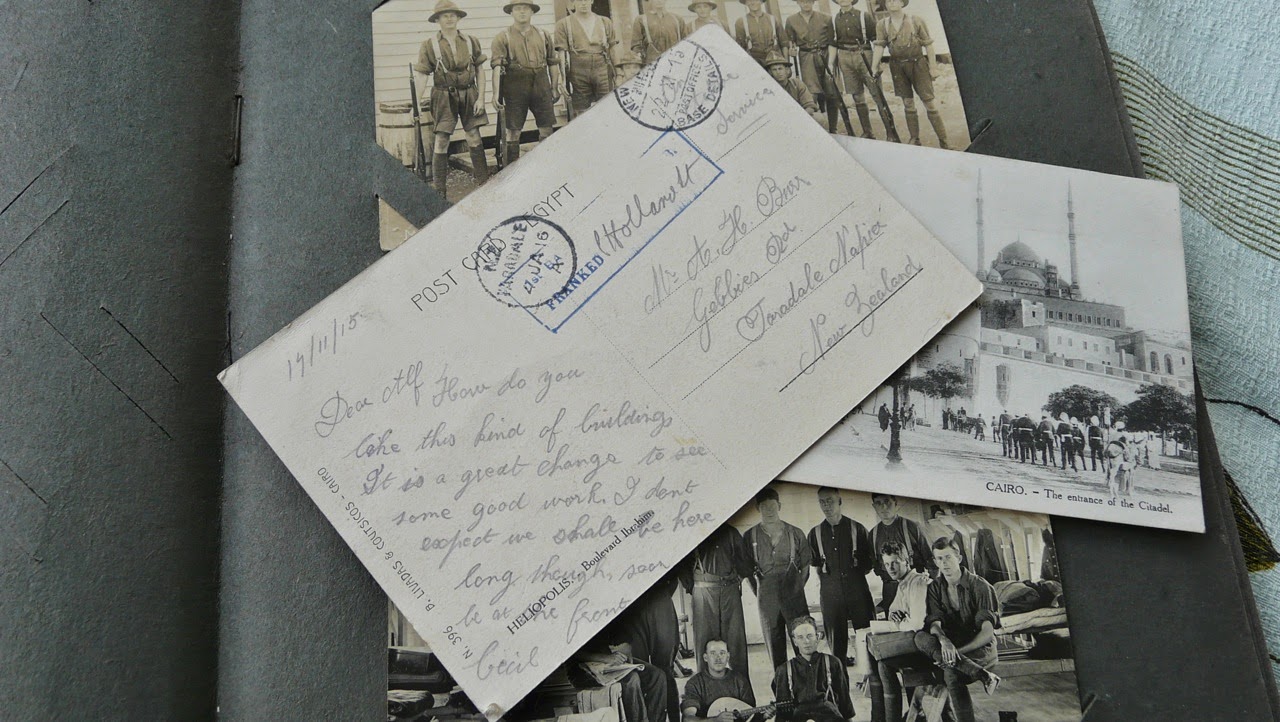 POST CARD EGYPT
NEW
BASE DETAILS
Service
N.Z.
TARADALE
JA 16
FRANKED
Mr A. H. Burr
Gebbies Rd
Taradale Napier
New Zealand
19/11/15
Dear Alf How do you
like this kind of buildings
It is a great change to see
some good work. I dont
expect we shall be here
long though, soon
be at the front
Cecil
HELIOPOLIS. Boulevard Ibrahim
N. 396 B. LIVADAS & COUTSICOS - CAIRO
CAIRO. - The entrance of the Citadel.